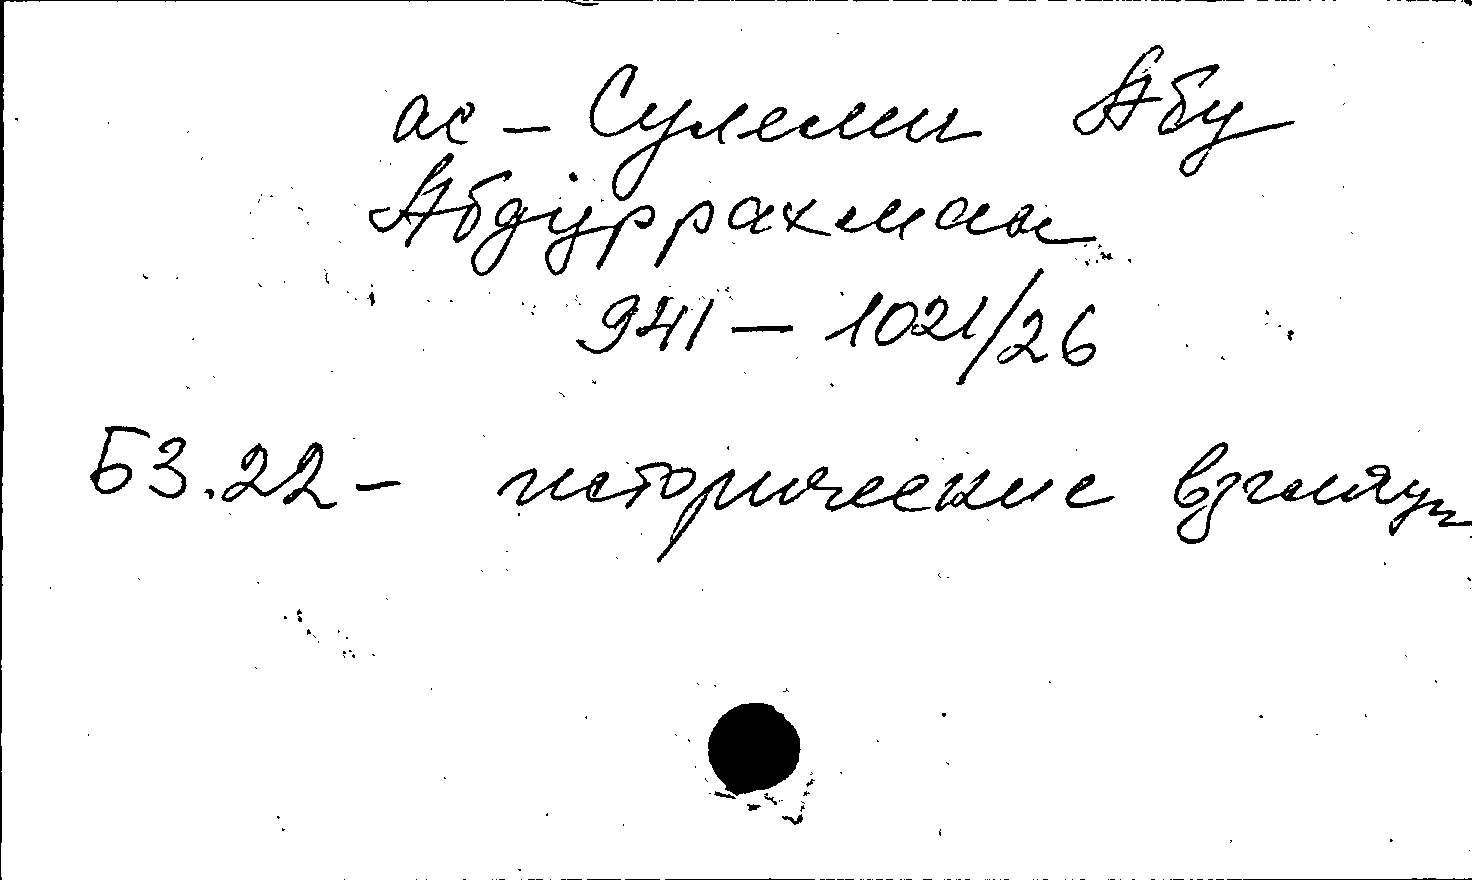 ас - Сулеми Абу
Абдуррахман
941 - 1021/26
Б3.22 - исторические взгляды